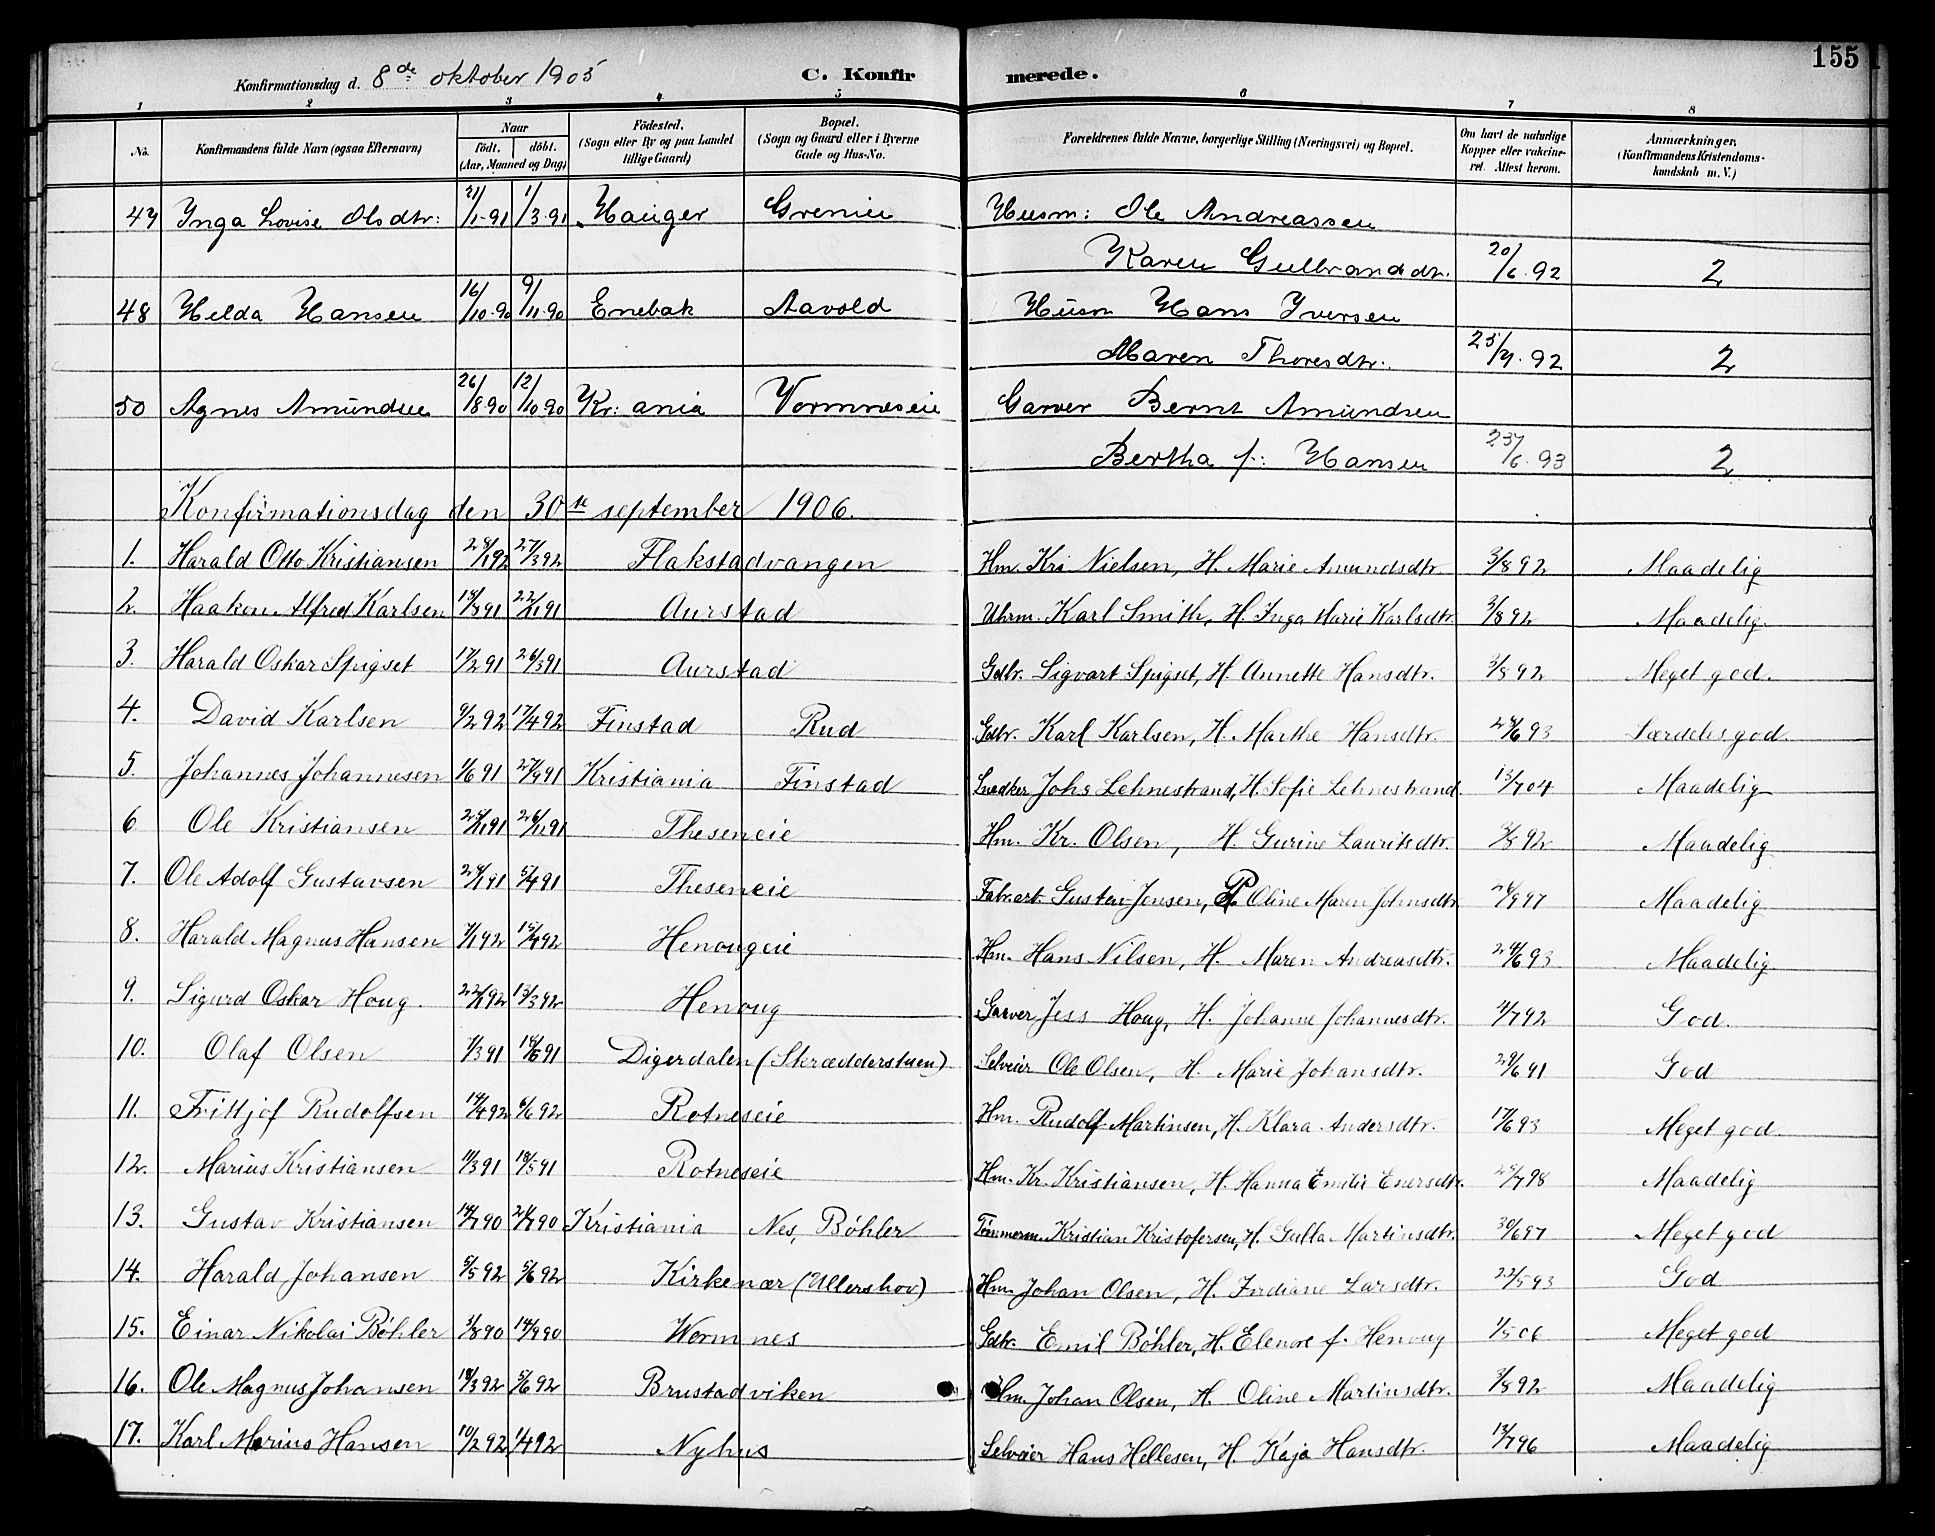 155
Konfirmationsdag d. 8de oktober 1905 C. Konfirmerede.
1 2 3 4 5 6 7 8
No. Konfirmandens fulde Navn (ogsaa Efternavn) Naar födt. döbt. (Aar, Maaned og Dag) Födested. (Sogn eller By og paa Landet tillige Gaard) Bopæl. (Sogn og Gaard eller i Byerne Gade og Hus-No. Forældrenes fulde Navne, borgerlige Stilling (Næringsvei) og Bopæl. Om havt de naturlige Kopper eller vakcineret. Attest herom. Anmærkninger, (Konfirmandens Kristendomskundskab m. V.)
49 Inga Lovise Olsdtr: 21/1-91 1/3-91 Hauger Grenie Husm: Ole Andreassen
Karen Gulbrandsdtr. 20/6-92 2
48 Helda Hansen 16/10-90 9/11-90 Enebak Aavold Husm Hans Iversen
Maren Thoresdtr. 92 2
50 Agnes Amundsen 26/8-90 12/10-90 Kr:ania Vormneseie Garver Bernt Amundsen
Bertha f: Hansen 93 2
Konfirmationsdag den 30te september 1906.
1. Harald Otto Kristiansen 92 27/3 92 Flakstadvangen Hm. Kri Nielsen, H. Marie Amundsdtr 3/8 92 Maadelig
2. Haakon Alfred Karlsen 91 91 Aurstad Uhrm. Karl Smith, H. Inga Marie Karlsdtr. 3/8 92 Maadelig.
3. Harald Oskar Spigset 17/2 91 26/3 91 Aurstad Gdbr. Sigvart Spigset, H. Annette Hansdtr. 3/8 92 Meget god.
4. David Karlsen 9/2 92 17/4 92 Finstad Rud Gdbr. Karl Karlsen, H. Marthe Hansdtr. 93 Særdeles god.
5. Johannes Johannesen 1/6 91 27/9 91 Kristiania Finstad Snedker Johs Lehnestrand, H. Sofie Lehnestrand. 13/7 04 Maadelig
6 Ole Kristiansen 91 91 Theseneie Hm. Kr. Olsen, H. Gurine Lauritsdtr. 3/8 92 Maadelig
7. Ole Adolf Gustavsen 91 5/4 91 Theseneie Fabr.arb. Gustav Jensen, P. Oline Maren Johnsdtr. 97 Maadelig
8. Harald Magnus Hansen 7/1 92 92 Henougeie Hm. Hans Nilsen, H. Maren Andreasdtr. 24/6 93 Maadelig
9. Sigurd Oskar Houg. 22/1 92 13/3 92 Henoug Garver Jess Houg, H. Johanne Johannesdtr. 92 God.
10. Olaf Olsen 1/3 91 91 Digerdalen (Skrædderstuen) Selveier Ole Olsen, H. Marie Johansdtr. 91 God
11. Frittjof Rudolfsen 14/4 92 6/6 92 Rotneseie Hm. Rudolf Martinsen, H. Klara Andersdtr. 17/6 93 Meget god
12. Marius Kristiansen 11/3 91 18/5 91 Rotneseie Hm. Kr. Kristiansen, H. Hanna Emilie Enersdtr. 98 Maadelig
13. Gustav Kristiansen 90 90 Kristiania Nes, Bøhler Tømmerm. Kristian Kristofersen, H. Gulla Martinsdtr. 30/6 97 Meget god
14. Harald Johansen 5/5 92 5/6 92 Kirkenær (Ullershov) Hm. Johan Olsen, H. Indiane Larsdtr. 22/5 93 God
15. Einar Nikolai Bøhler 3/8 90 14/9 90 Wormnes Gdbr. Emil Bøhler, H. Elenore f. Henoug 1/5 06 Meget god
16. Ole Magnus Johansen 18/3 92 5/6 92 Brustadviken Hm. Johan Olsen, H. Oline Martinsdtr. 3/8 92 Maadelig
17. Karl Marius Hansen 10/2 92 1/4 92 Nyhus Selveier Hans Hellesen, H. Kaja Hansdtr. 13/7 96 Maadelig